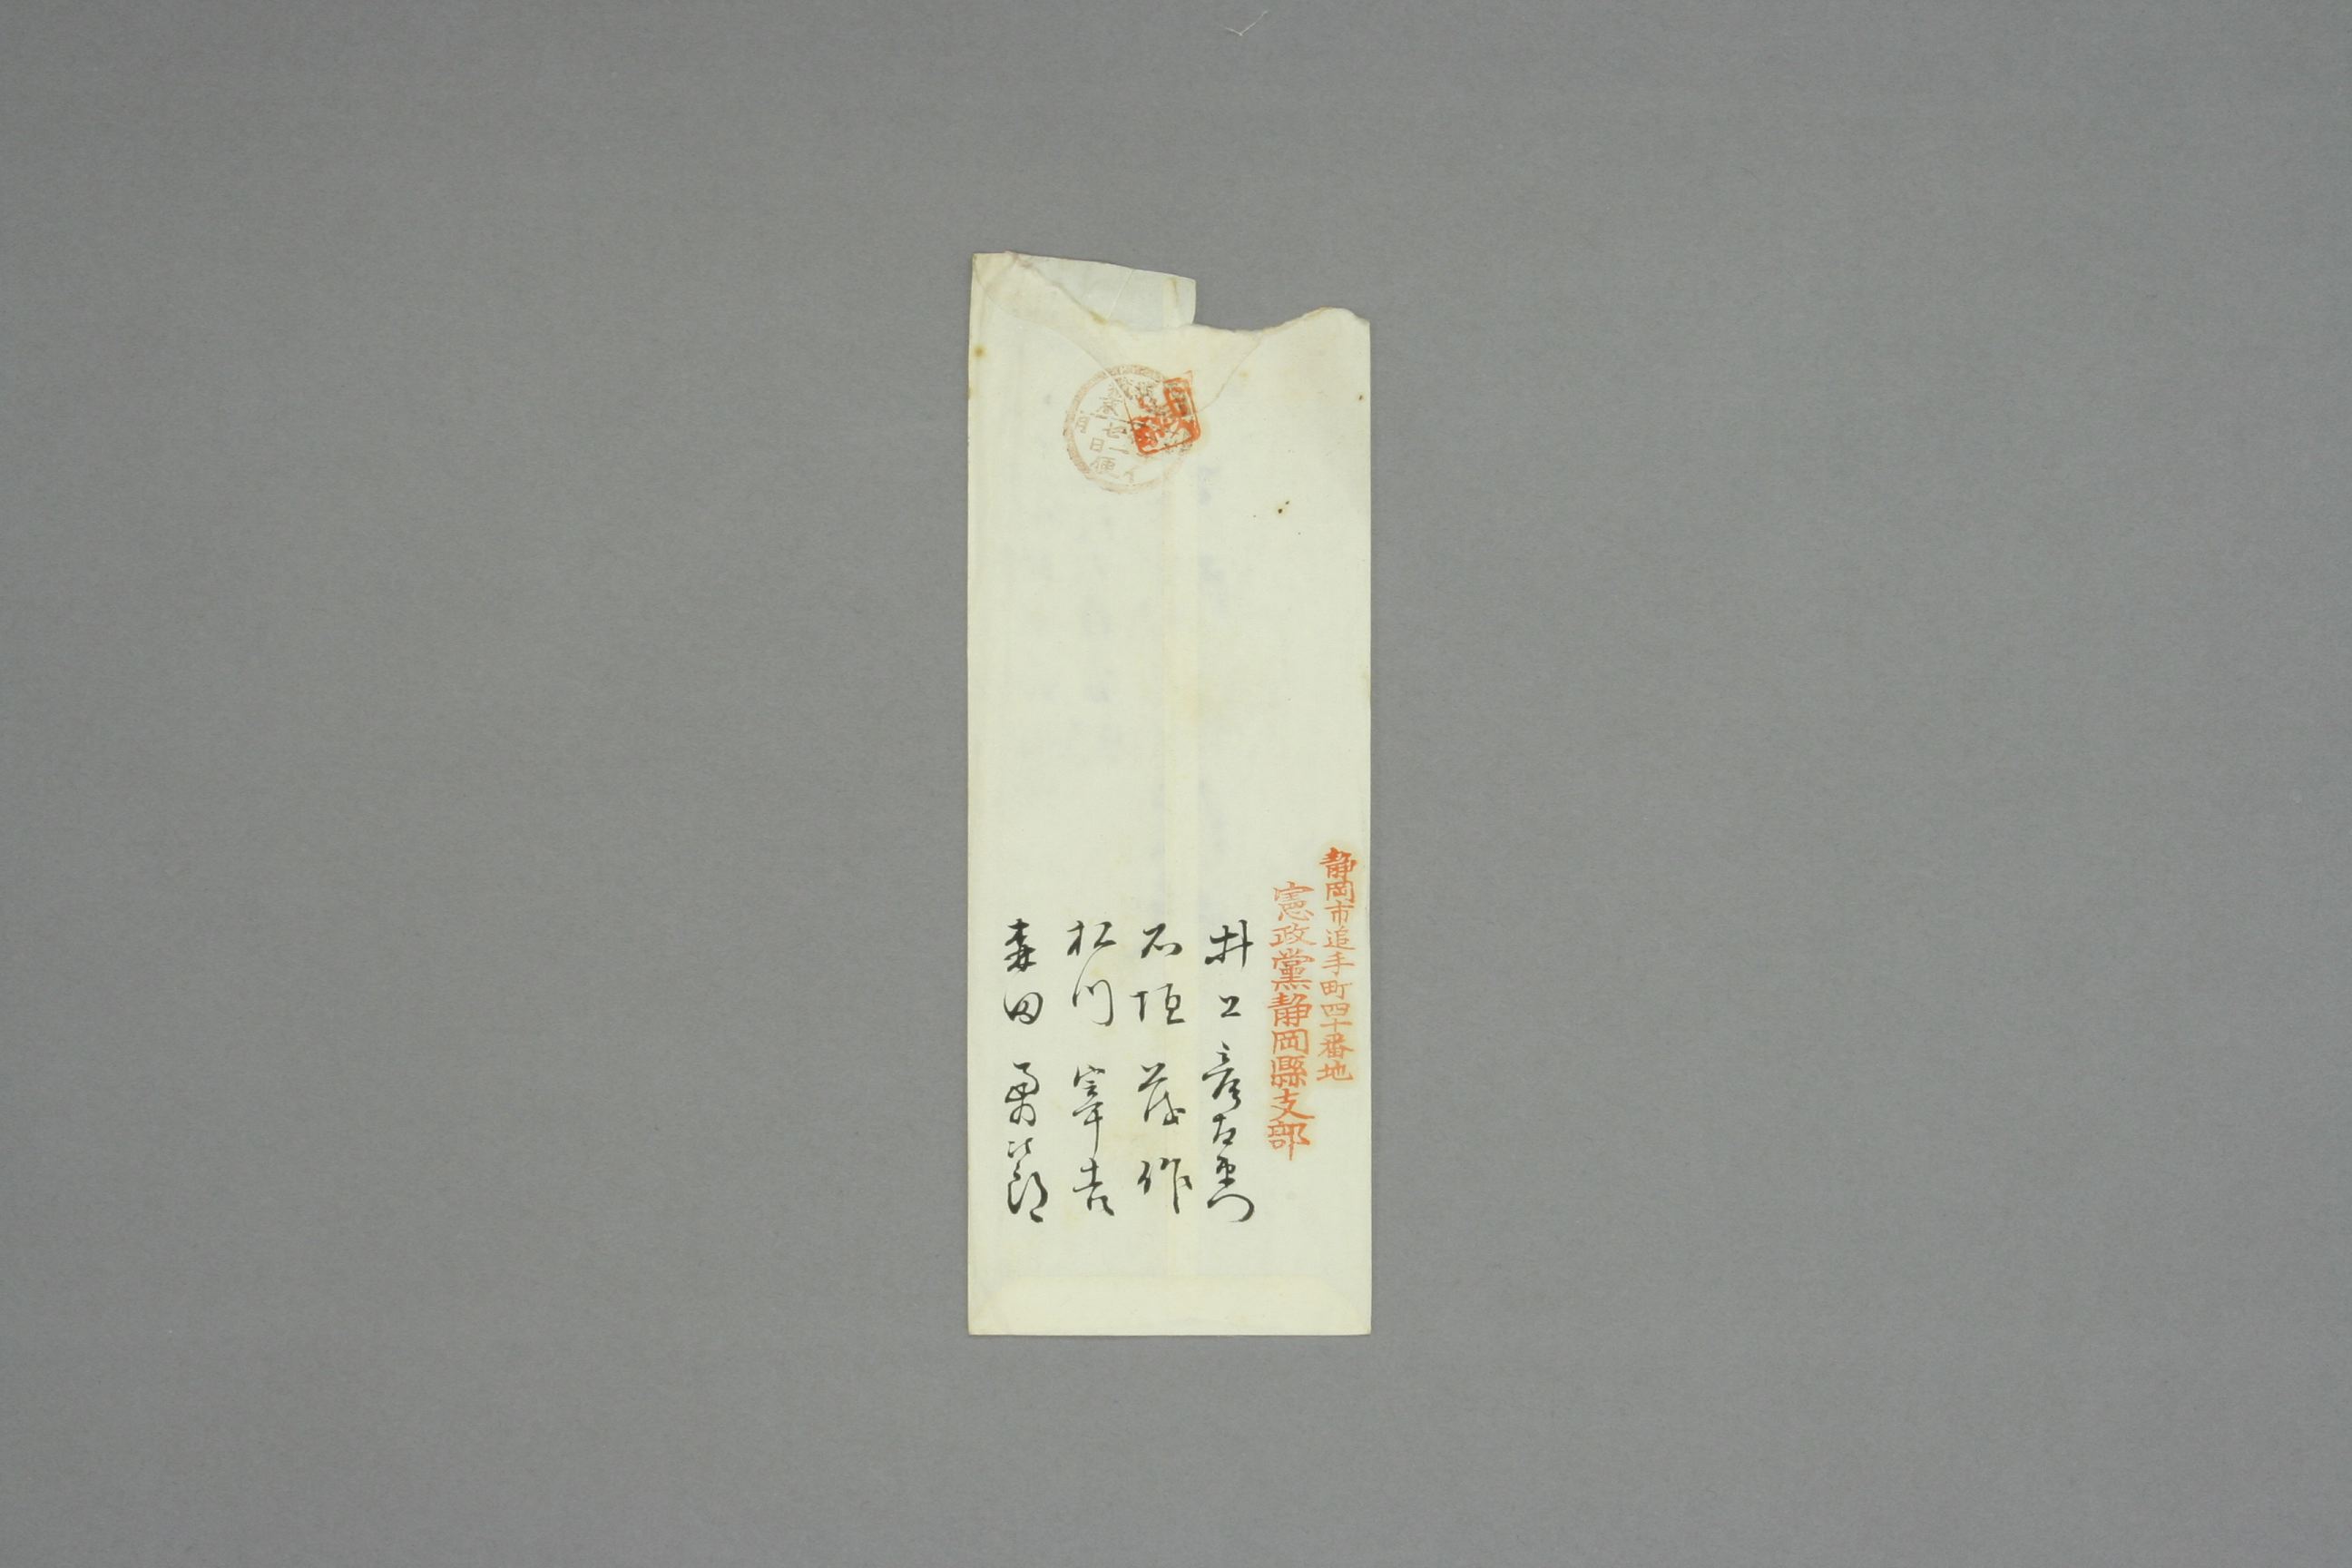 静岡市追手町四十番地
憲政黨静岡縣支部
井上彦左衛門
石垣茂作
松川宰吉
森田勇次郎